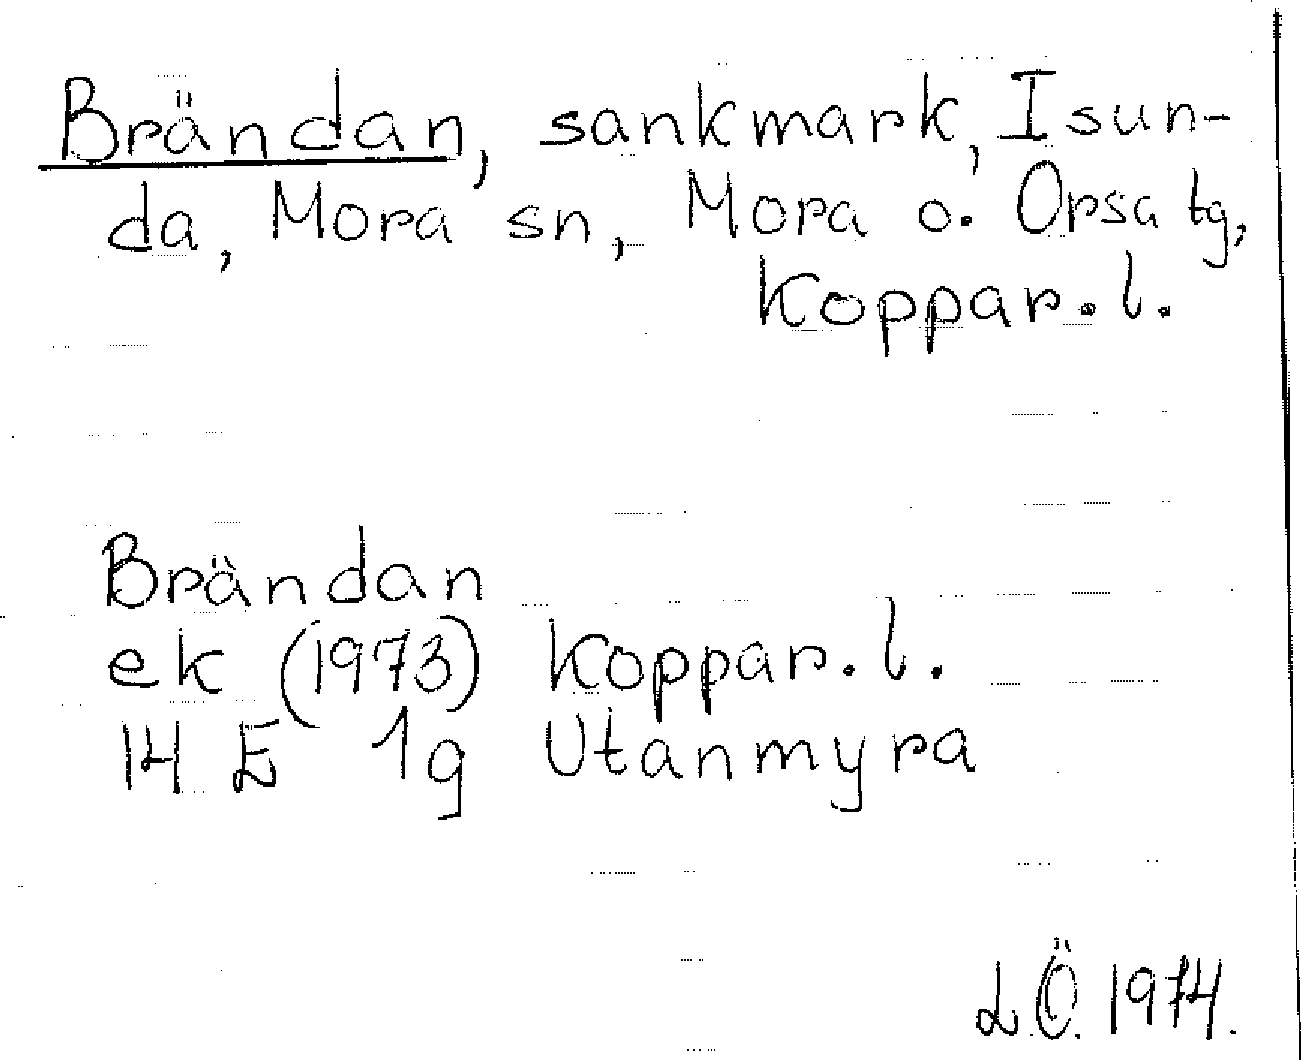 Brändan, sankmark, Isun-
da, Mora sn, Mora o. Orsa tg,
Koppar.l.
Brändan
ek (1973) Koppar.l.
14 E 1g Utanmyra
L.Ö. 1974.